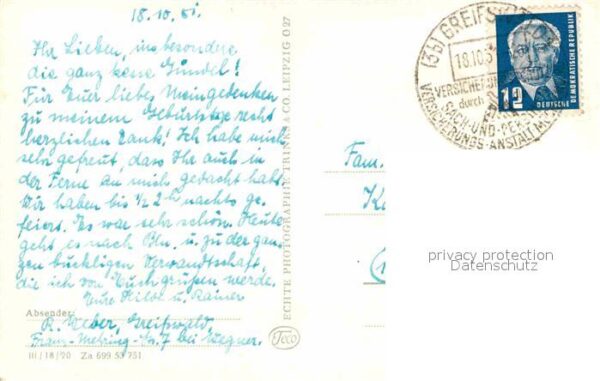 18.10.51.
Ihr Lieben, insbesondere
die ganz kesse Gundel!
Für Euer liebes Meingedenken
zu meinem Geburtstage recht
herzlichen Dank! Ich habe mich
sehr gefreut, dass Ihr auch in
der Ferne an mich gedacht habt.
Wir haben bis ½ 2h nachts ge-
feiert. Es war sehr schön. Heute
geht es nach Bln. u. zu der gan-
zen buckligen Verwandtschaft,
die ich von Euch grüßen werde.
Eure Hilde u. Rainer
Absender:
R. Weber, Greifswald,
Franz-Mehring-Str. 7 bei Wegner.
III/18/20 Za 699 53 751
ECHTE PHOTOGRAPHIE & CO. LEIPZIG O 27
Teco
Fam.
(3b) GREIFS
18.10.5
VERSICHERUN
durch
SACH-UND-PE
VERSICHERUNGS-ANSTALT
12
DEUTSCHE
DEMOKRATISCHE REPUBLIK
privacy protection
Datenschutz